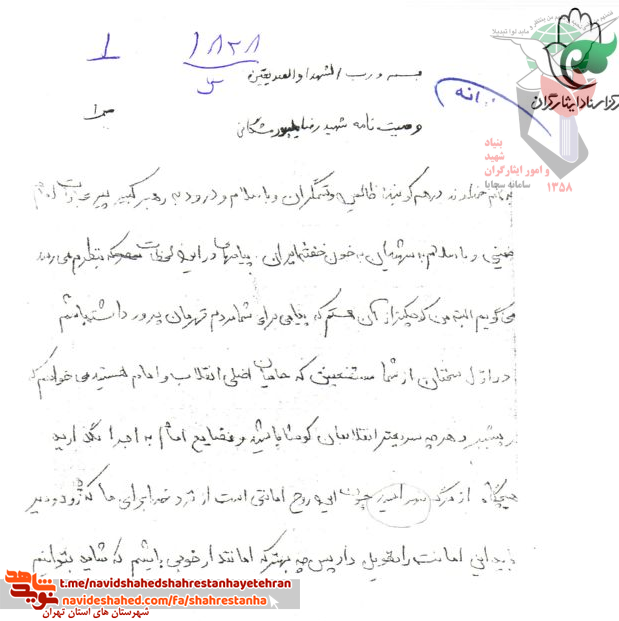 ۱
۱۸۳۸
۵
مرکز اسناد ایثارگران
بسمه و رب الشهدا والصدیقین
وصیت نامه شهید رضا
ص ۱
بنیاد
شهید
و امور ایثارگران
سامانه سجایا
۱۳۵۸
بنام خداوند درهم کوبنده ظالمین و ستمگران و با سلام و درود به رهبر کبیر امام
خمینی و با سلام به شهیدان به خون خفته ایران در این لحظات که بنظرم می رسد
می گویم البته من کوچکتر از آن هستم که پیامی برای شما مردم قهرمان پرور داشته باشم
در اول سخنان از شما مستضعفین که حامیان اصلی انقلاب و امام هستید می خواهم که
در پیشبرد هر چه سریعتر انقلابمان کوشا باشید و امام به اجرا بگذارید
هیچگاه از مرگ چون این روح امانتی است از نزد خدا برای ما که زود و دیر
باید این امانت را تحویل داد پس چه بهتر که امانتدار خوبی باشیم که شاید بتوانیم
نوید شاهد
t.me/navidshahedshahrestanhayetehran
navideshahed.com/fa/shahrestanha
شهرستان های استان تهران